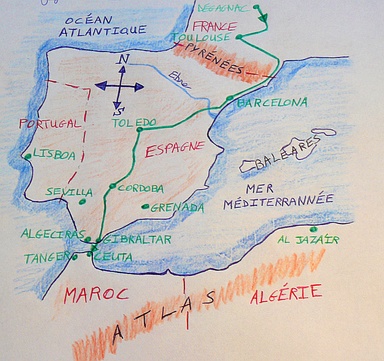 DEGAGNAC
OCÉAN
ATLANTIQUE
FRANCE
TOULOUSE
PYRÉNÉES
N
Ebre
BARCELONA
PORTUGAL
TOLEDO
ESPAGNE
LISBOA
BALÉARES
SEVILLA
CORDOBA
MER
MÉDITERRANNÉE
GRENADA
ALGECIRAS
GIBRALTAR
AL JAZAÏR
TANGER
CEUTA
MAROC
ATLAS
ALGÉRIE